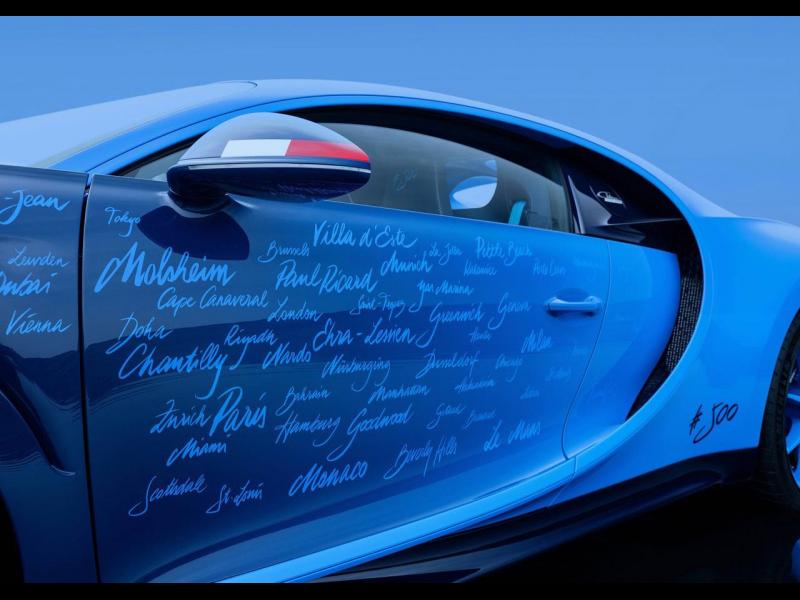 -Jean
Leuvden
Dubai
Vienna
Tokyo
Molsheim
Brussels
Villa d'Este
Munich
La Jolla
Pebble Beach
Paul Ricard
San Marino
Cape Canaveral
London
Saint-Tropez
Greenwich
Geneva
Doha
Riyadh
Ehra-Lessien
Milan
Chantilly
Nardo
Nürburgring
Düsseldorf
Chicago
Zurich
Paris
Bahrain
Manhattan
Hamburg
Goodwood
Miami
Beverly Hills
Le Mans
Scottsdale
St. Louis
Monaco
#500